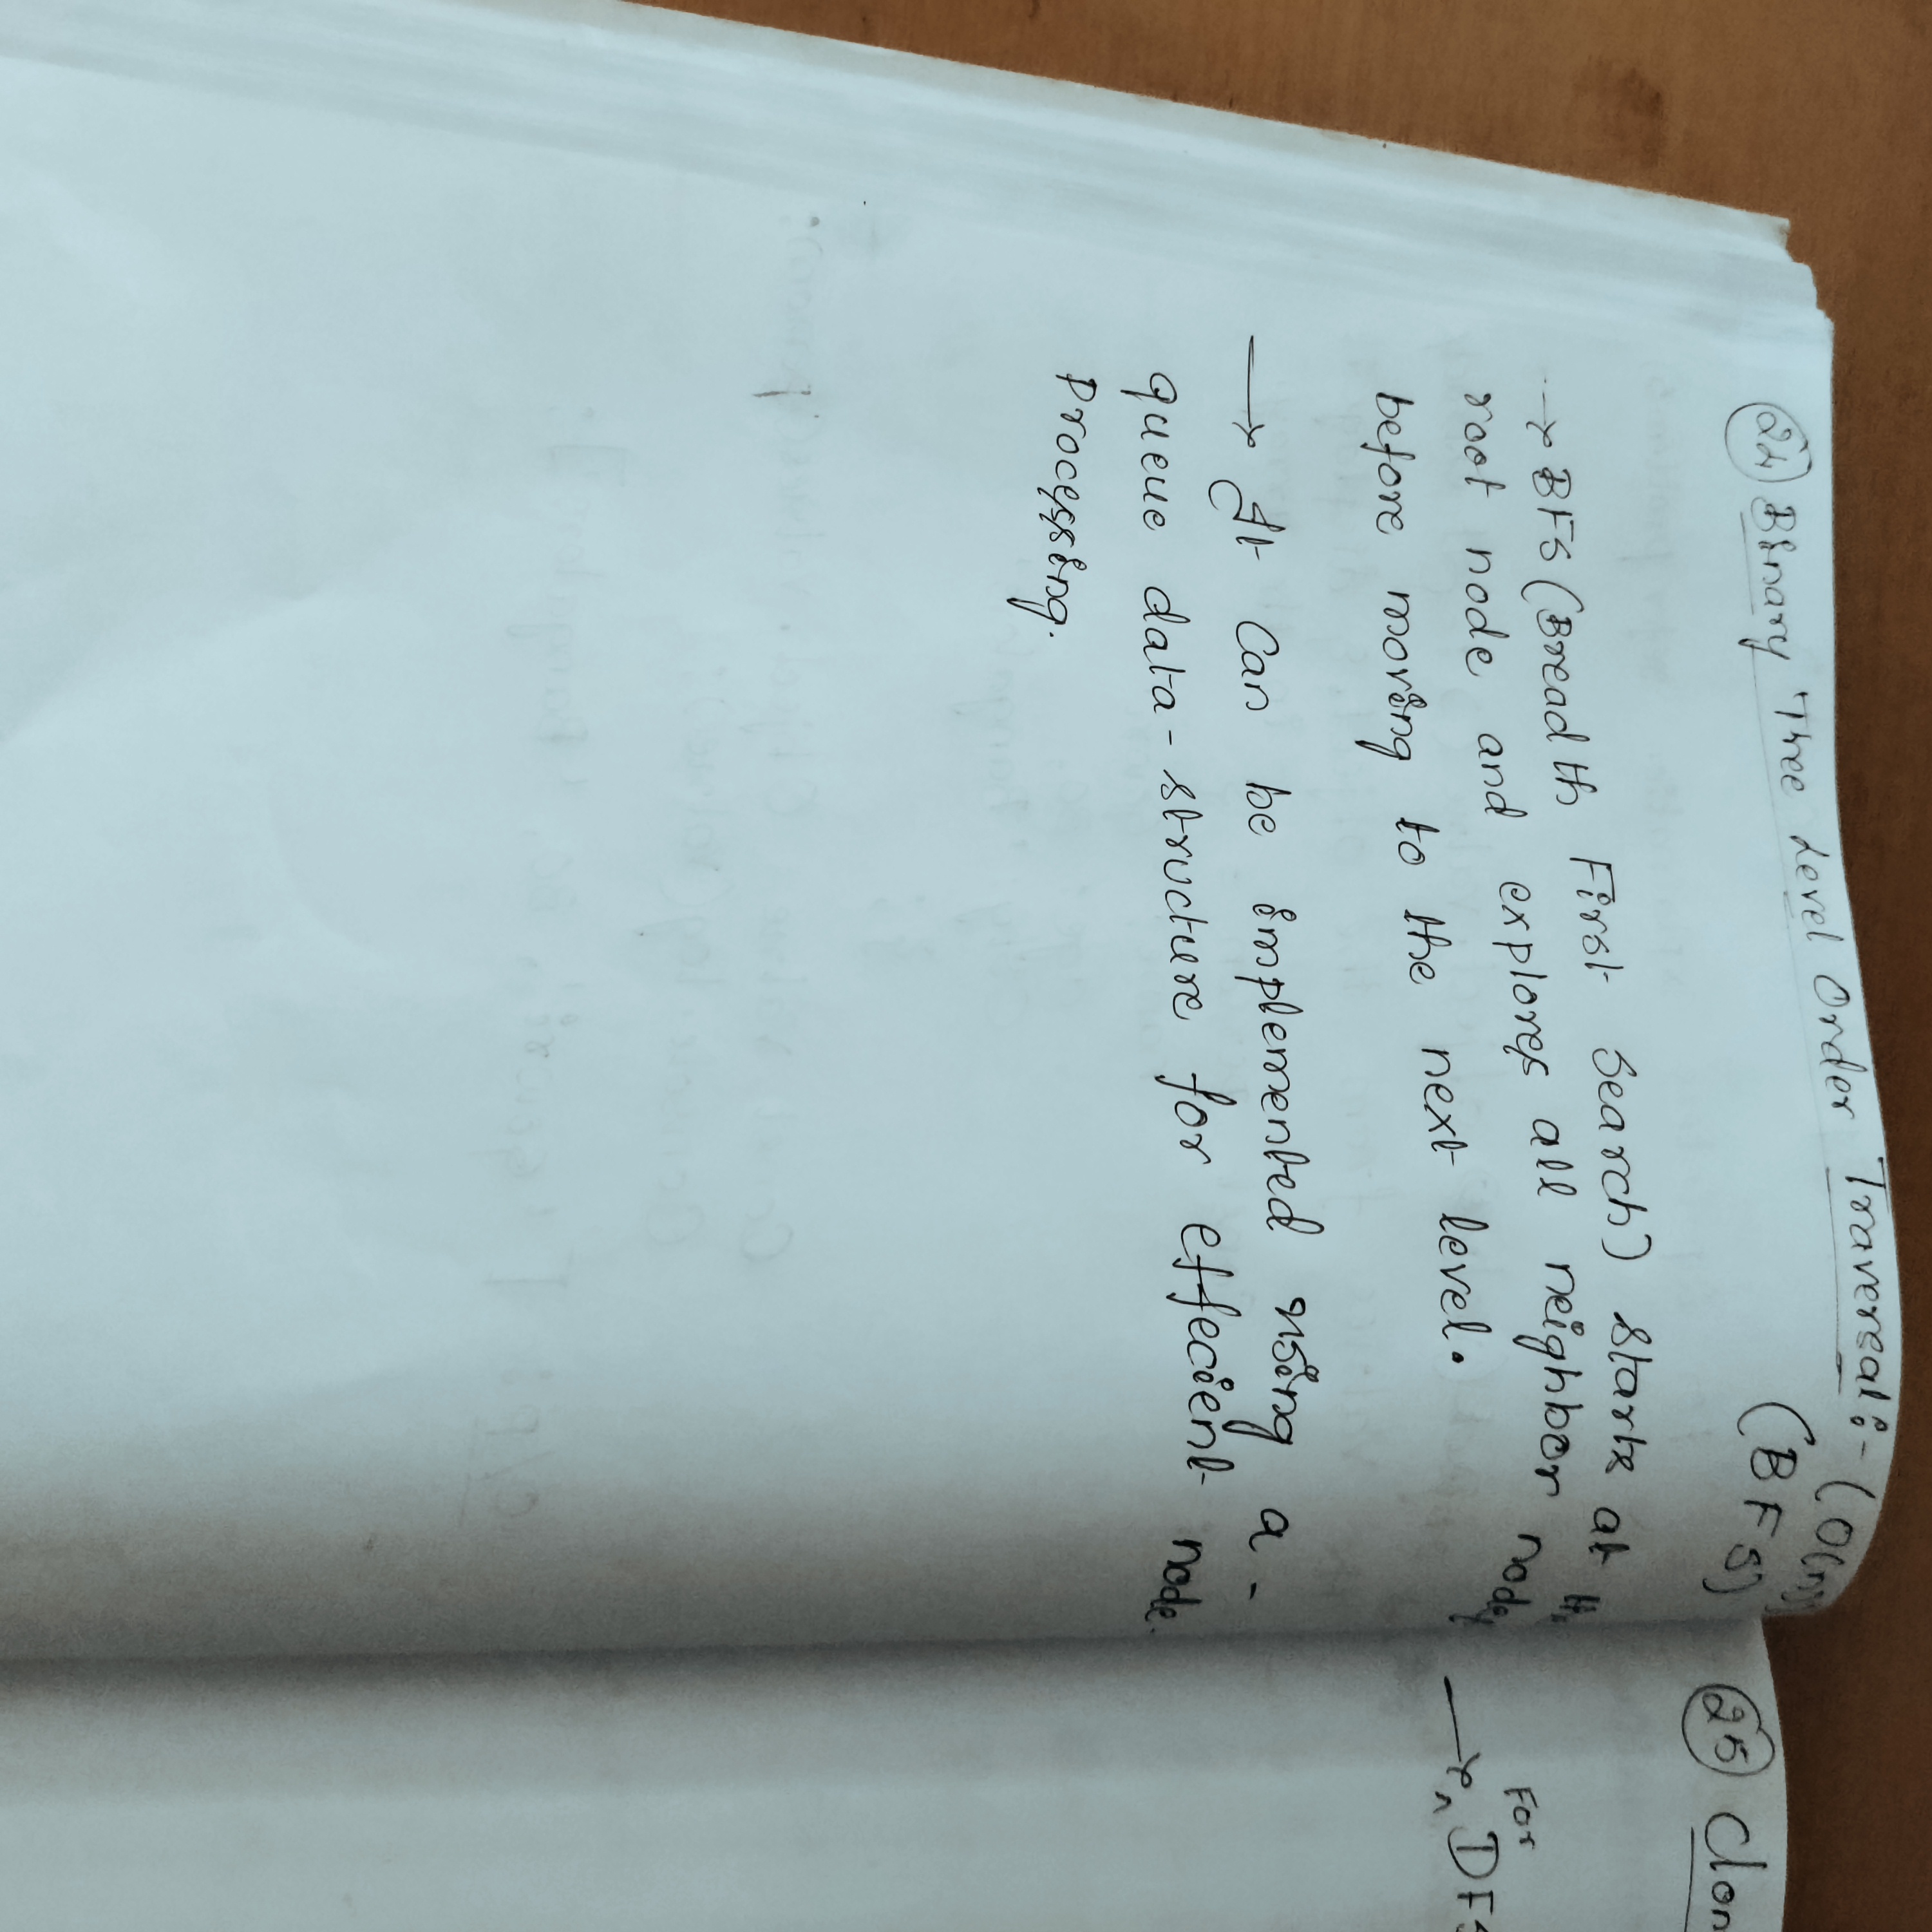 (24) Binary Three Level Order Traversal:- (O(n))
(BFS)
→ BFS (Breadth First Search) starts at the
root node and explores all neighbor nodes
before moving to the next level.
→ It Can be implemented using a-
queue data-structure for effecient node
Processing.
(25) Clon
For
→ DFS